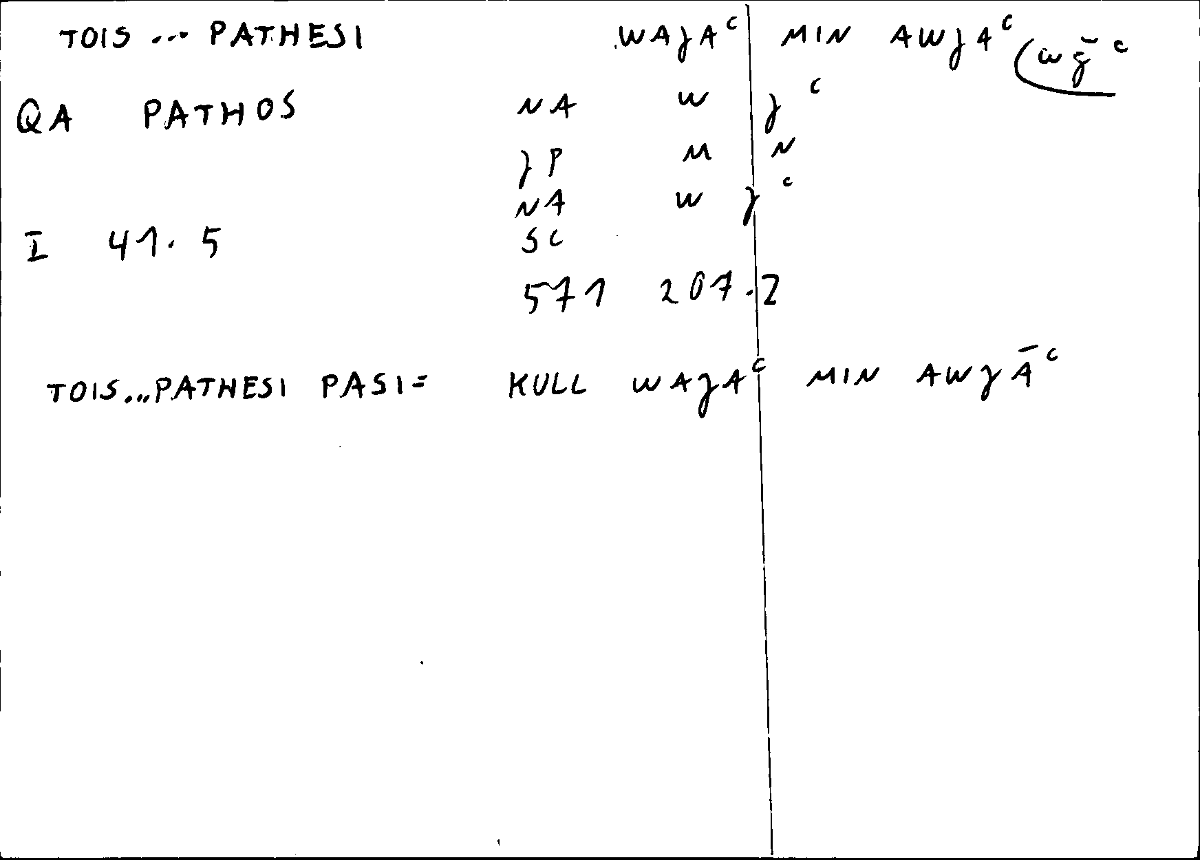 TOIS ... PATHESI WAȷAᶜ MIN AWȷAᶜ (wȷ̄ᶜ
QA PATHOS NA W ȷᶜ
ȷP M N
NA W ȷᶜ
I 41.5 SC
571 207.2
TOIS...PATHESI PASI= KULL WAȷAᶜ MIN AWȷĀᶜ